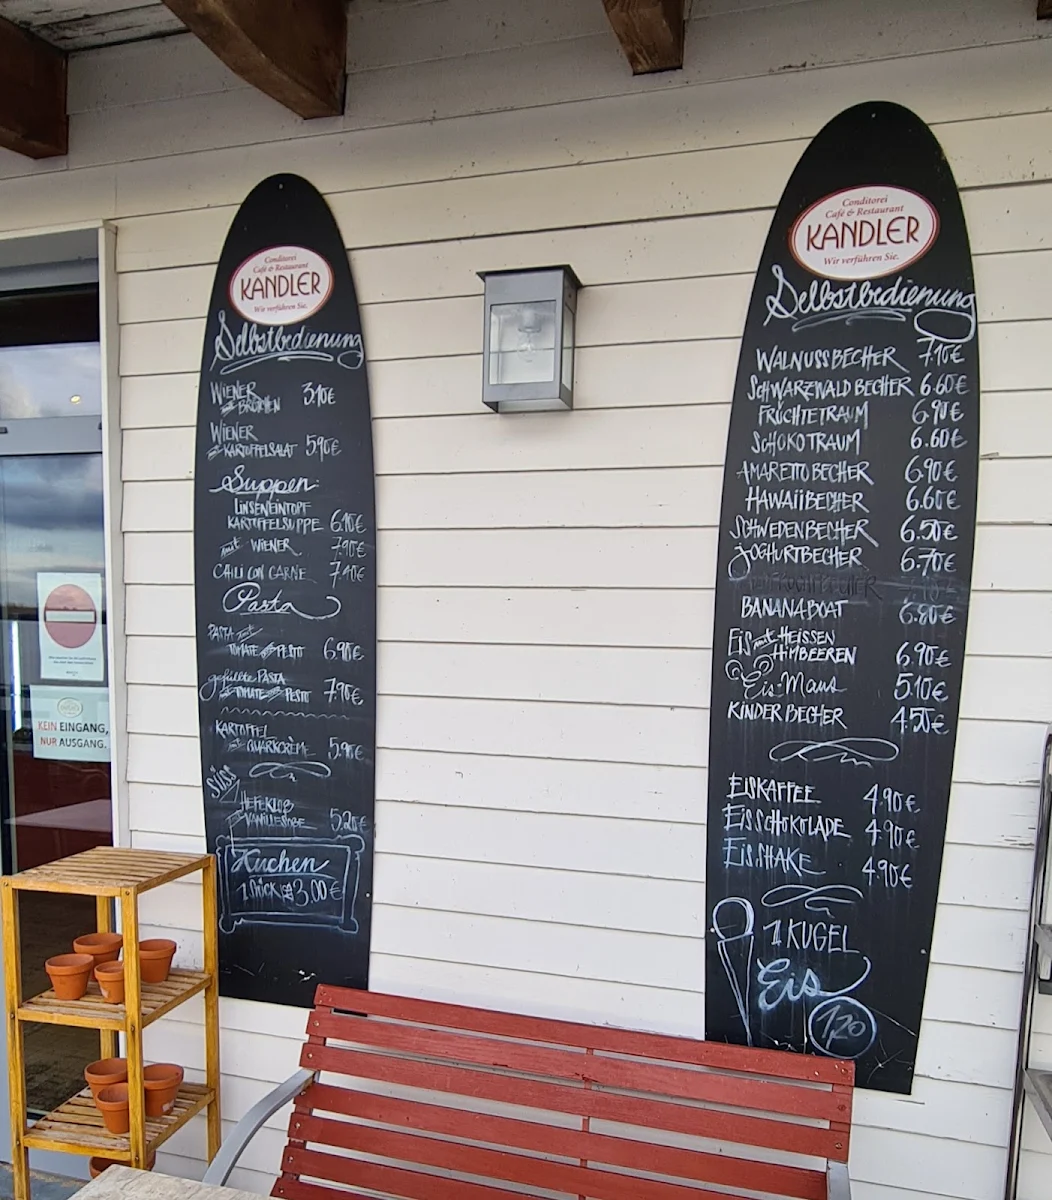 Conditorei
Café & Restaurant
KANDLER
Wir verführen Sie.
Selbstbedienung
WIENER 3.10€
mit BRÖTCHEN
WIENER
mit KARTOFFELSALAT 5,90€
Suppen:
LINSENEINTOPF
KARTOFFELSUPPE 6.10€
mit WIENER 7.90€
CHILI CON CARNE 7.40€
Pasta
PASTA mit
TOMATE oder PESTO 6.90€
gefüllte PASTA
mit TOMATE oder PESTO 7.90€
KARTOFFEL
mit QUARKCRÈME 5.90€
SÜSS
HEFEKLOß
VANILLESOßE 5.20€
Kuchen
1 STÜCK 3.00€
KEIN EINGANG,
NUR AUSGANG.
Conditorei
Café & Restaurant
KANDLER
Wir verführen Sie.
Selbstbedienung
WALNUSSBECHER 7.10€
SCHWARZWALD BECHER 6.60€
FRÜCHTETRAUM 6.90€
SCHOKOTRAUM 6.60€
AMARETTO BECHER 6.90€
HAWAIIBECHER 6.60€
SCHWEDENBECHER 6.50€
JOGHURTBECHER 6.70€
BANANABOAT 6.80€
EIS mit HEISSEN
HIMBEEREN 6.90€
Eis-Maus 5.10€
KINDERBECHER 4.50€
EISKAFFEE 4.90€
EISSCHOKOLADE 4.90€
EIS.SHAKE 4.90€
1 KUGEL
Eis
1,20